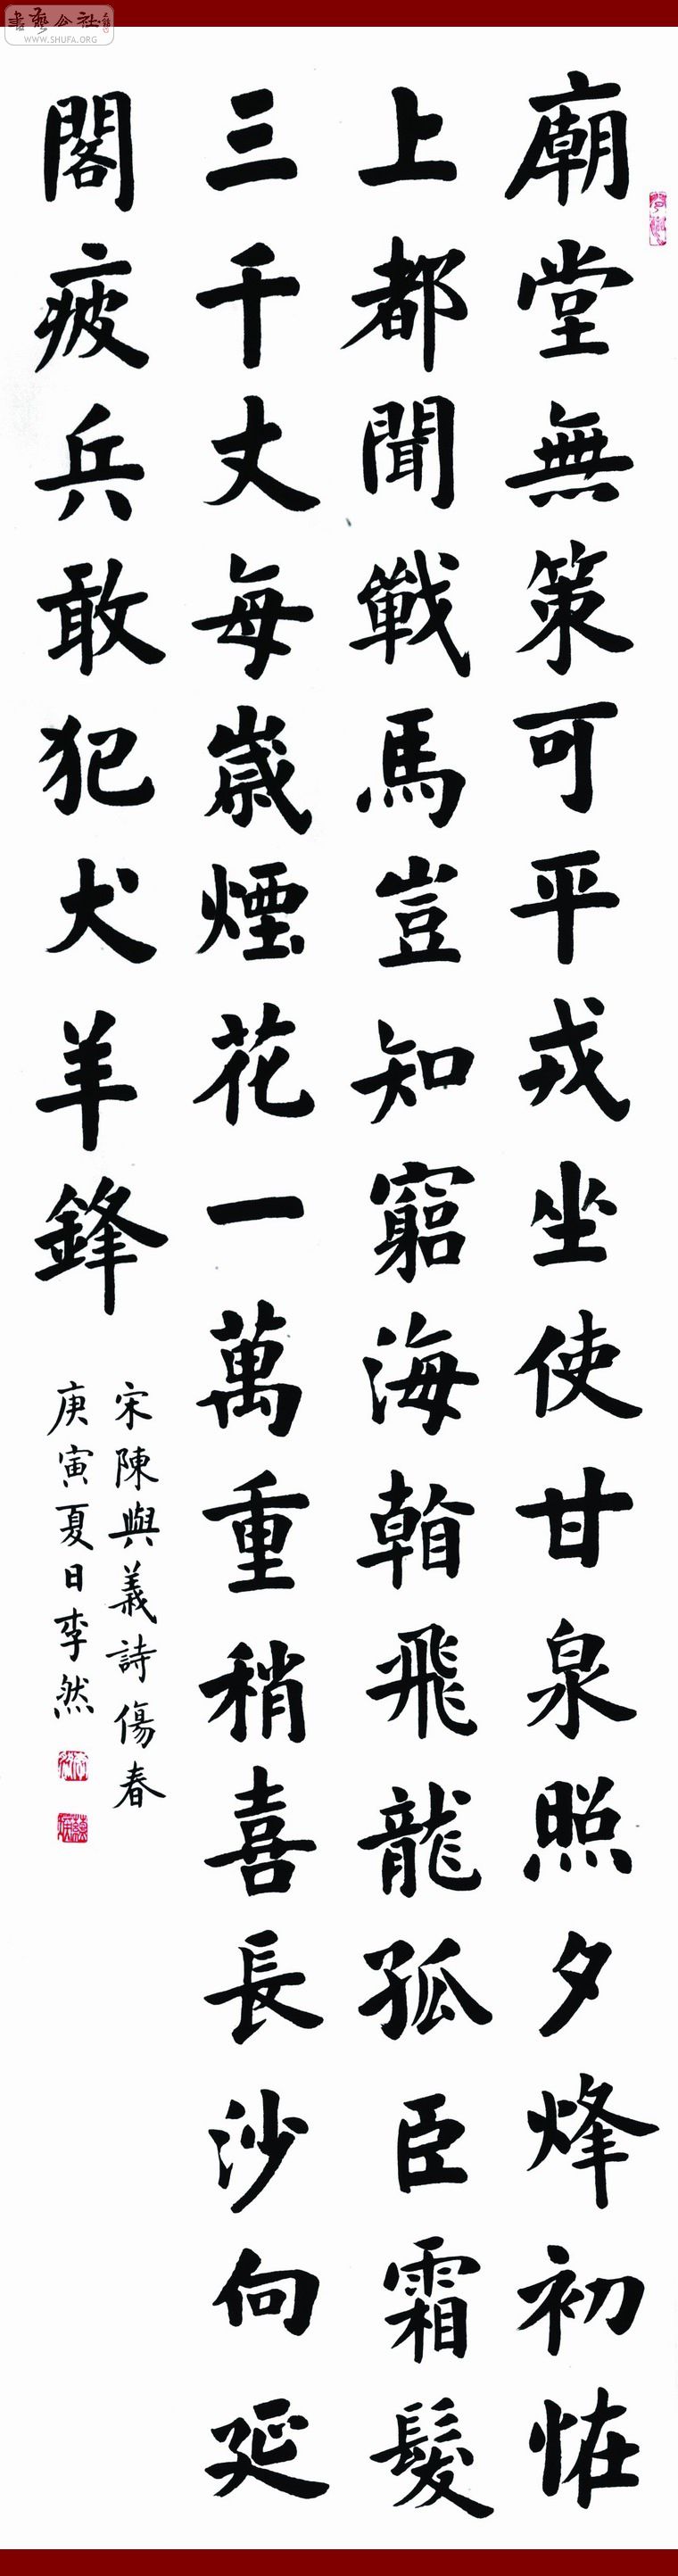 書藝公社
WWW.SHUFA.ORG
廟堂無策可平戎坐使甘泉照夕烽初恠
上都聞戰馬豈知竆海看飛龍孤臣霜髮
三千丈每歲煙花一萬重稍喜長沙向延
閣疲兵敢犯犬羊鋒
宋陳與義詩傷春
庚寅夏日李然